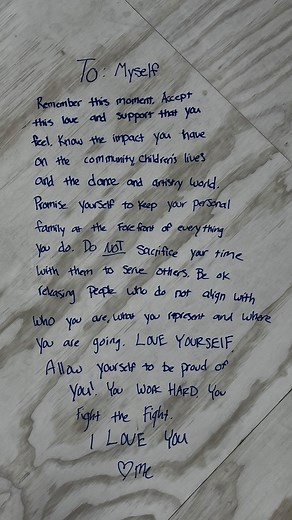 To: Myself
Remember this moment. Accept
this love and support that you
feel. Know the impact you have
on the community, children's lives
and the dance and artistry world.
Promise yourself to keep your personal
family at the forefront of everything
you do. Do NOT sacrifice your time
with them to serve others. Be ok
releasing people who do not align with
who you are, what you represent and where
you are going. LOVE YOURSELF.
Allow yourself to be proud of
you! You WORK HARD. You
fight the fight.
I LOVE YOU
♡ me